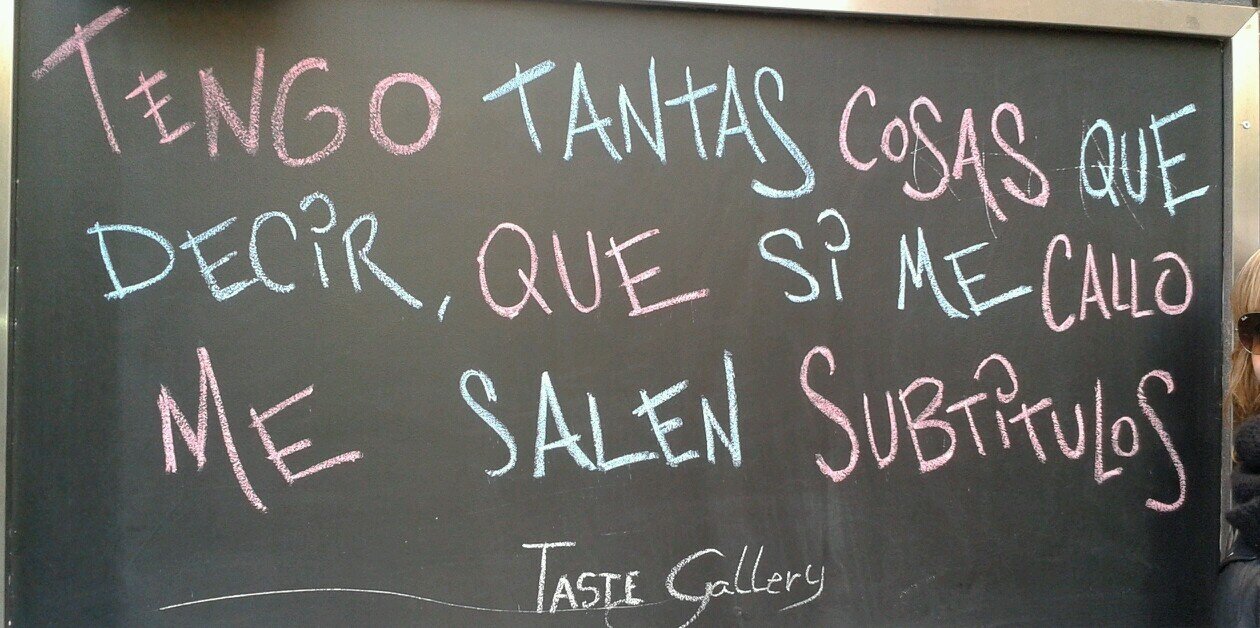 TENGO TANTAS COSAS QUE
DECIR, QUE SI ME CALLO
ME SALEN SUBTITULOS
TASTE Gallery